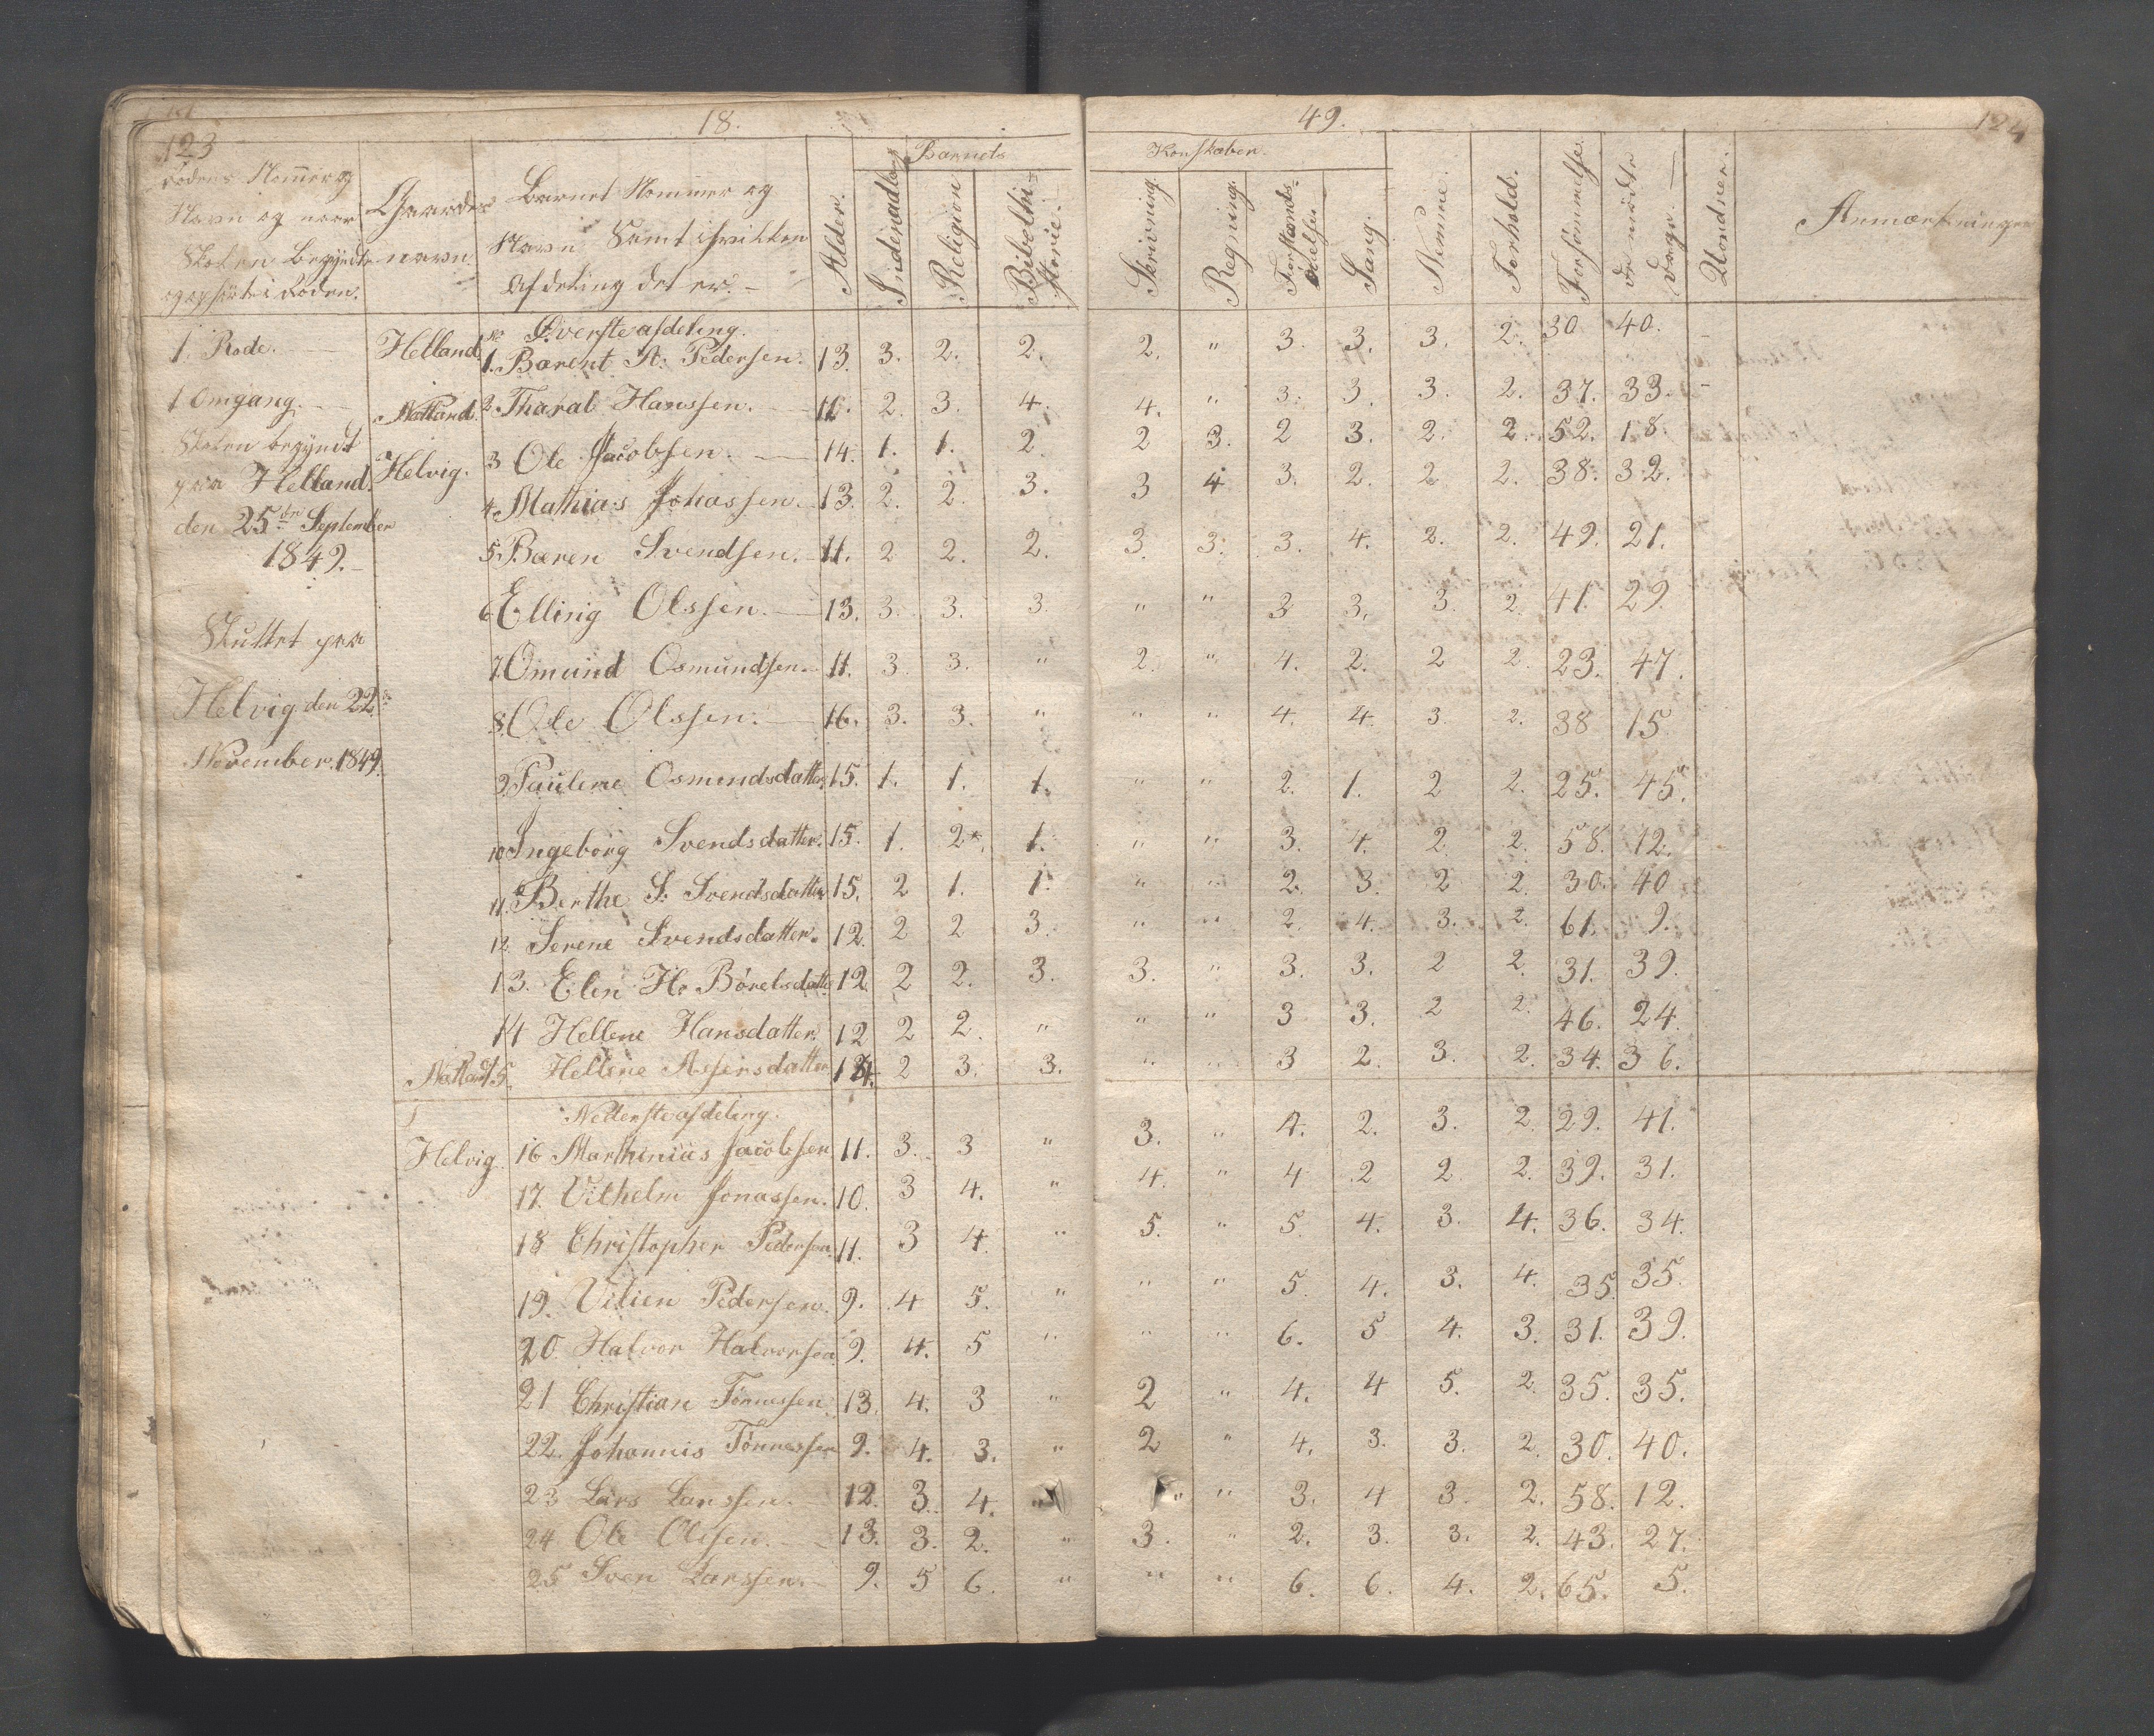 123 18. 49. 124
Rodens Nommer og
Navn og naar
Skolen Begyndte
og ophørte i Roden.
Gaardens
navn.
Barnet Nommer og
Navn Samt i hvilken
Afdeling det er. -
Alder.
Barnets
Kunskaber.
Indenadlæs
Religion
Bibelhistorie.
Skrivning.
Regning.
Forstands-øvelse
Sang.
Nemme.
Forhold.
Forsømmelse.
de mødte Dage.
Anmærkninger
1. Rode.
1 Omgang.
Skolen begyndt
paa Helland.
den 25de September
1849.
Sluttet paa
Helvig den 22de
November. 1849.
Øverste afdeling.
Helland. 1. Barent A. Pedersen. 13. 3. 2. 2. 2. " 3. 3. 3. 2. 30 40.
Natland. 2 Tharal Hanssen. 11. 2. 3. 4. 4. " 3. 3. 3. 2. 37. 33.
Helvig. 3 Ole Jacobsen. 14. 1. 1. 2. 2 3. 2 3. 2. 2. 52. 18.
4. Mathias Johassen. 13. 2. 2. 3. 3 4 3. 2. 2 2. 38. 32.
5. Bæren Svendsen. 11. 2 2. 2. 3. 3. 3. 4. 2. 2. 49. 21.
6 Elling Olssen. 13. 3. 3. 3. " " 3 3. 3. 2. 41. 29.
7. Omund Osmundsen. 11. 3 3. " 2. " 4. 2. 2 2. 23. 47.
8. Ole Olssen. 16. 3. 3. " " " 4. 4. 3. 2. 38 15
9. Paulene Osmundsdatter 15. 1. 1. 1. " " 2. 1. 2 2. 25. 45.
10 Ingeborg Svendsdatter. 15. 1. 2*. 1. " " 3. 4. 2 2. 58. 12.
11. Berthe S. Svendsdatter 15. 2 1. 1. " " 2. 3. 2 2. 30. 40
12 Serene Svendsdatter. 12. 2 2 3. " " 2. 4. 3. 2. 61. 9.
13. Elen H. Børelsdatter 12 2 2. 3. 3. " 3. 3. 2 2. 31. 39.
14 Hellene Hansdatter. 12 2 2. " " " 3 3. 2 2. 46. 24.
Natland 15. Hellene Assersdatter 14. 2 3. 3. " " 3 2. 3. 2. 34. 36.
Nederste afdeling.
Helvig 16 Marthinius Jacobsen 11. 3. 3 " 3. " 4. 2. 3. 2. 29. 41.
17. Vilhelm Jonassen. 10. 3 4. " 4. " 4 2 2 2. 39. 31.
18 Christopher Pedersen. 11. 3 4. " 5. " 5. 4. 3. 4. 36. 34.
19. Vilien Pedersen. 9. 4 5. " " " 5. 4. 3. 4. 35. 35.
20. Halvor Halvorsen 9. 4. 5 " " " 6. 5 4. 3. 31. 39.
21 Christian Tønnessen. 13. 4. 3 " 2 " 4. 4 5. 2. 35. 35.
22. Johannis Tønnessen 9. 4. 3. " 2 " 4. 3. 3. 2. 30. 40.
23 Lars Larssen. 12. 3. 4. " " " 3. 4 3. 2. 58. 12.
24 Ole Olssen. 13. 3. 2. " 3. " 2. 3. 3. 2. 43. 27.
25 Sven Larssen. 9. 5 6. " " " 6. 6. 4. 2. 65. 5.